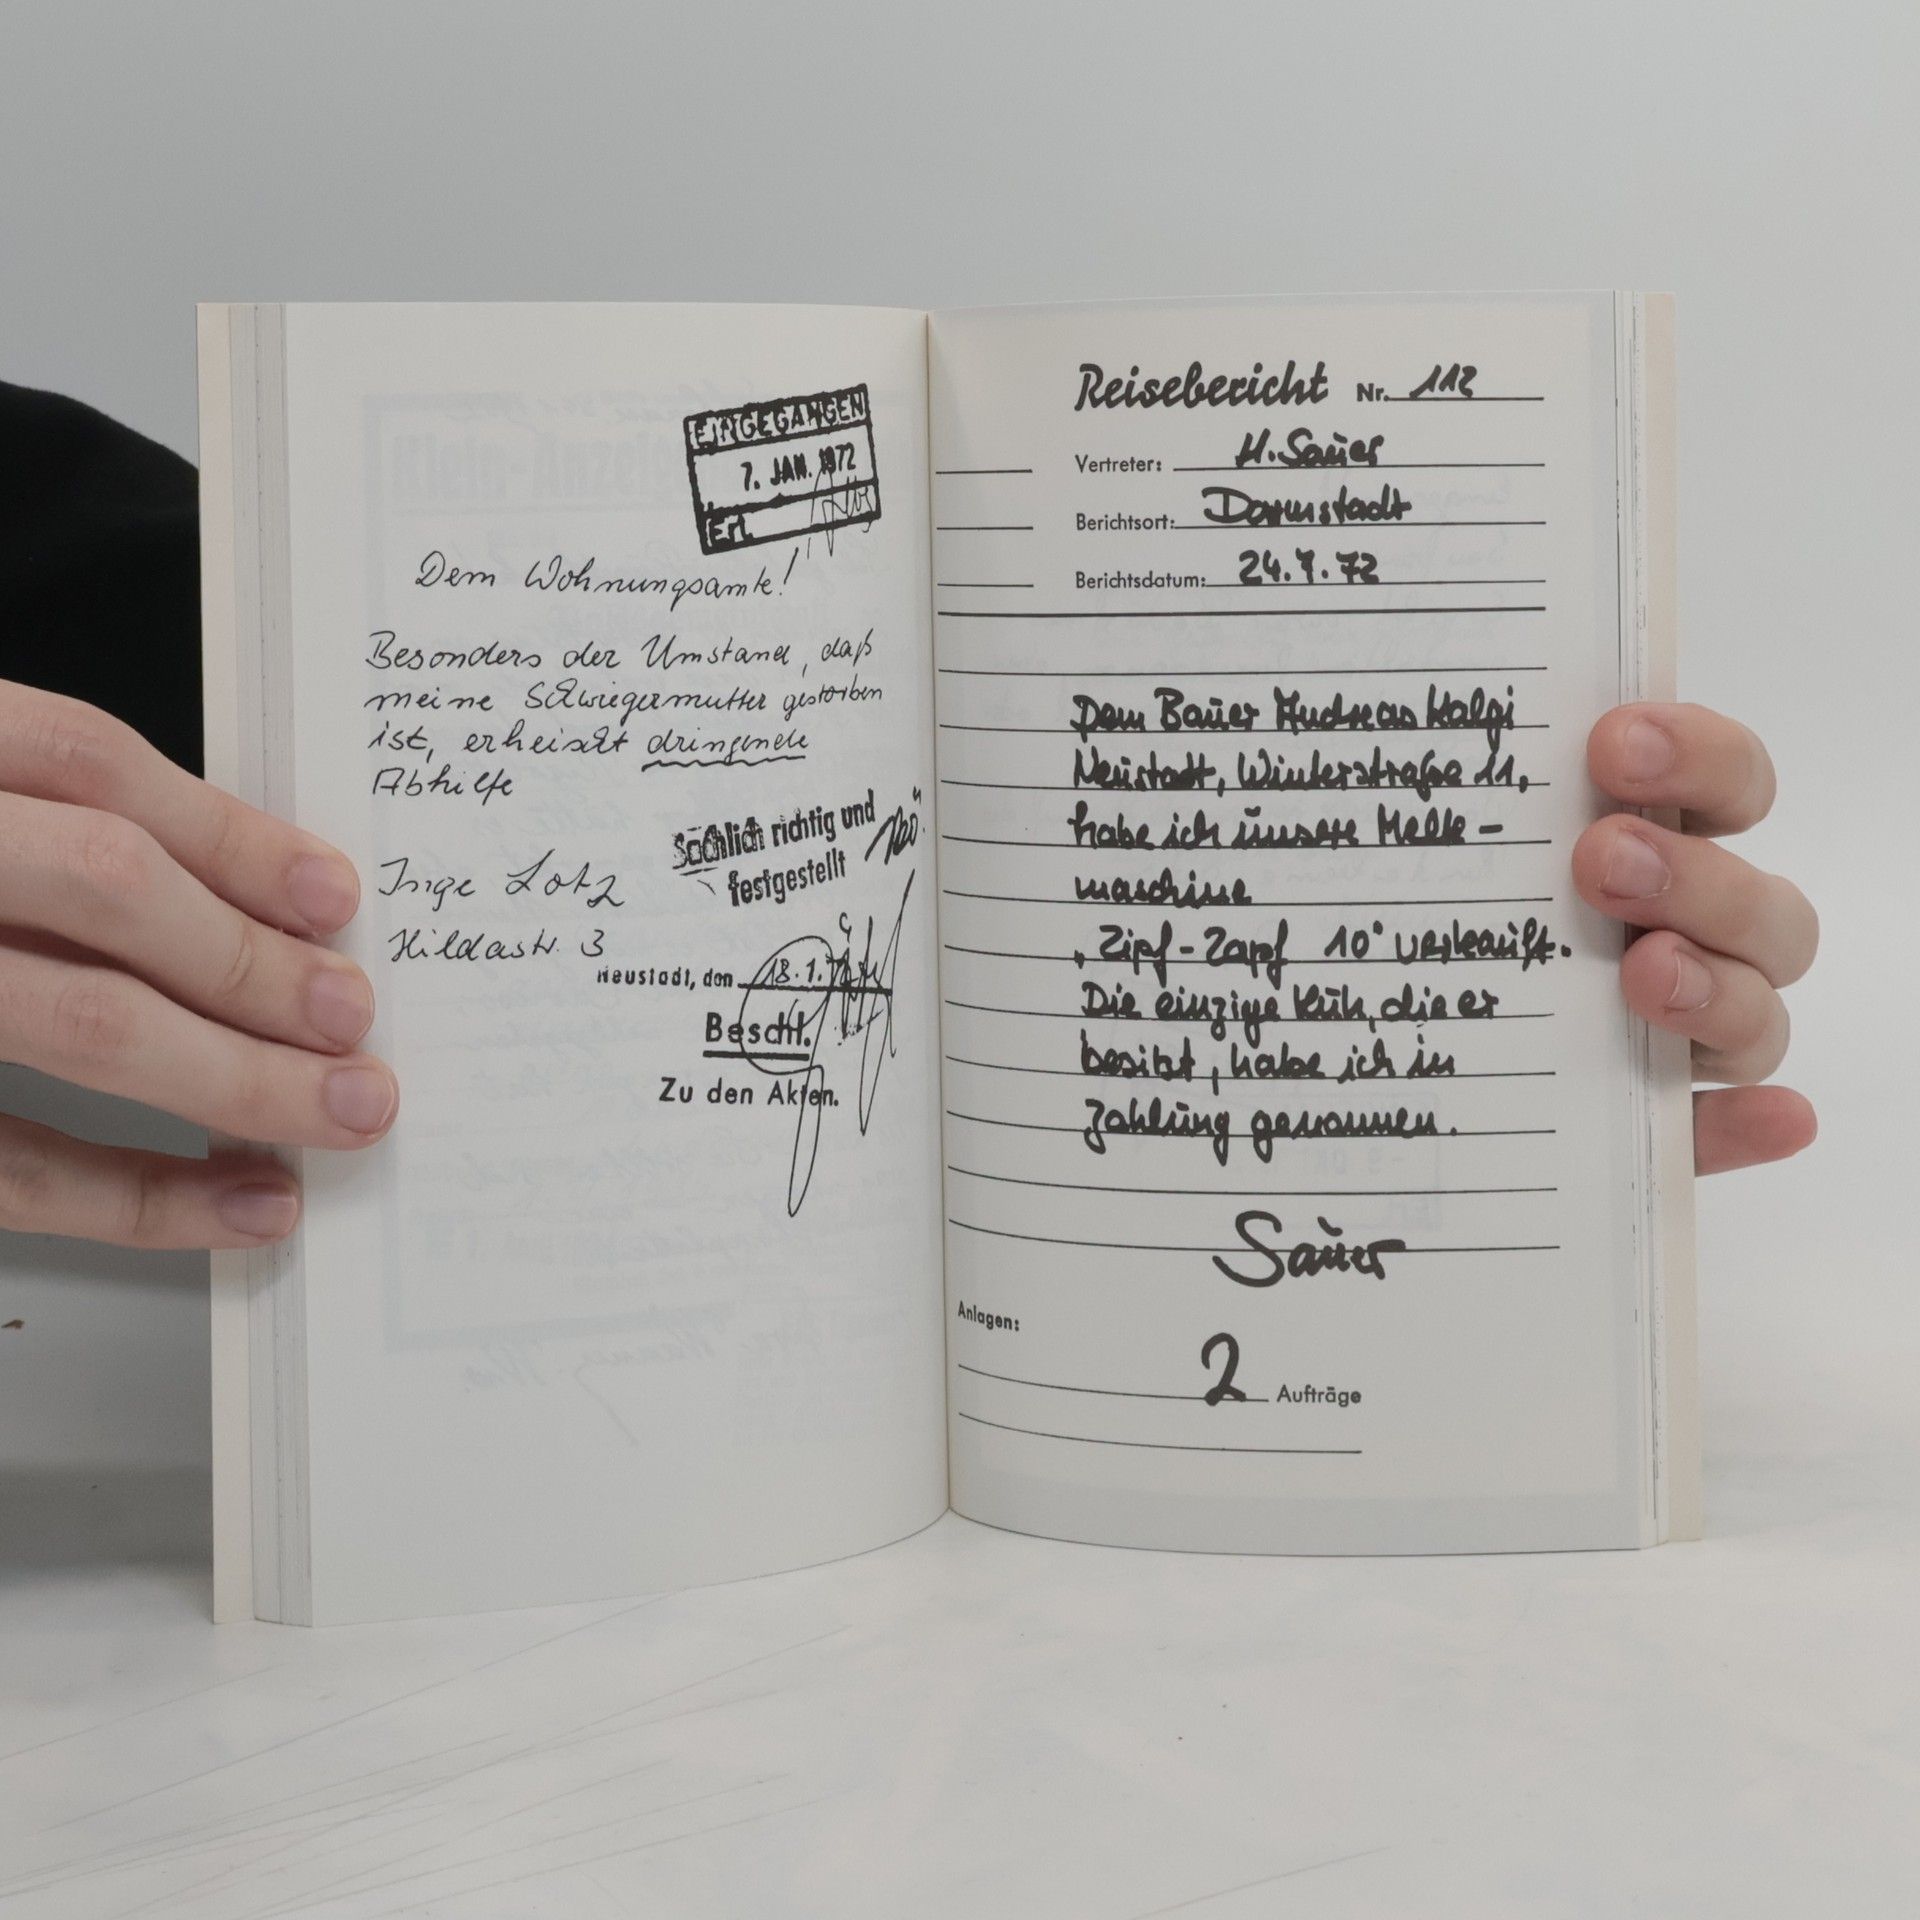 EINGEGANGEN
7. JAN. 1972
Erl.
Dem Wohnungsamte!
Besonders der Umstand, daß
meine Schwiegermutter gestorben
ist, erheischt dringende
Abhilfe
Sachlich richtig und
festgestellt
Inge Lotz
Hildastr. 3
Neustadt, den 18.1.
Beschl.
Zu den Akten.
Reisebericht Nr. 112
Vertreter: H. Sauer
Berichtsort: Darmstadt
Berichtsdatum: 24.7.72
Dem Bauer Andreas Kalgi
Neustadt, Winterstraße 11,
habe ich unsere Melk-
maschine
"Zipf-Zapf 10" verkauft.
Die einzige Kuh, die er
besitzt, habe ich in
Zahlung genommen.
Sauer
Anlagen:
2 Aufträge